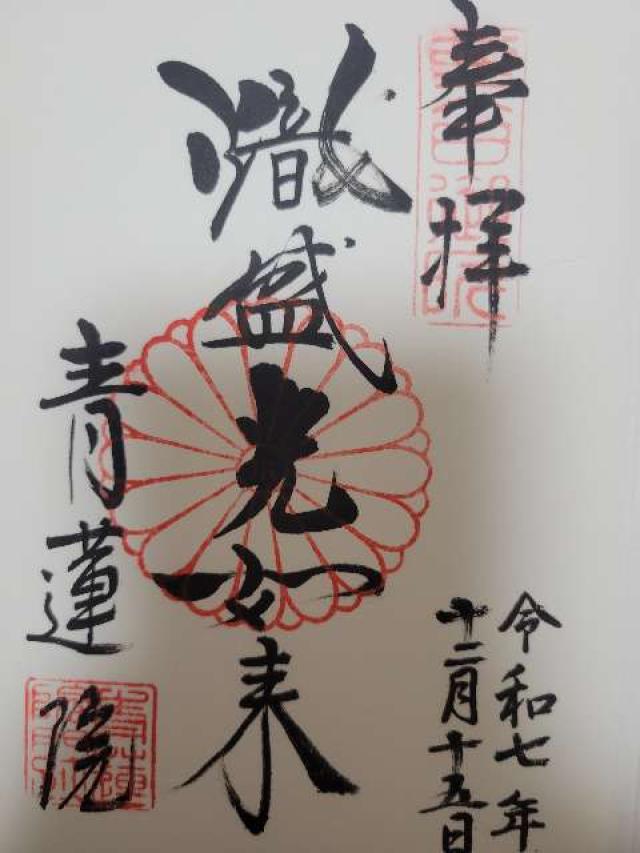 奉拝
熾盛光如来
青蓮院
令和七年
十二月十五日